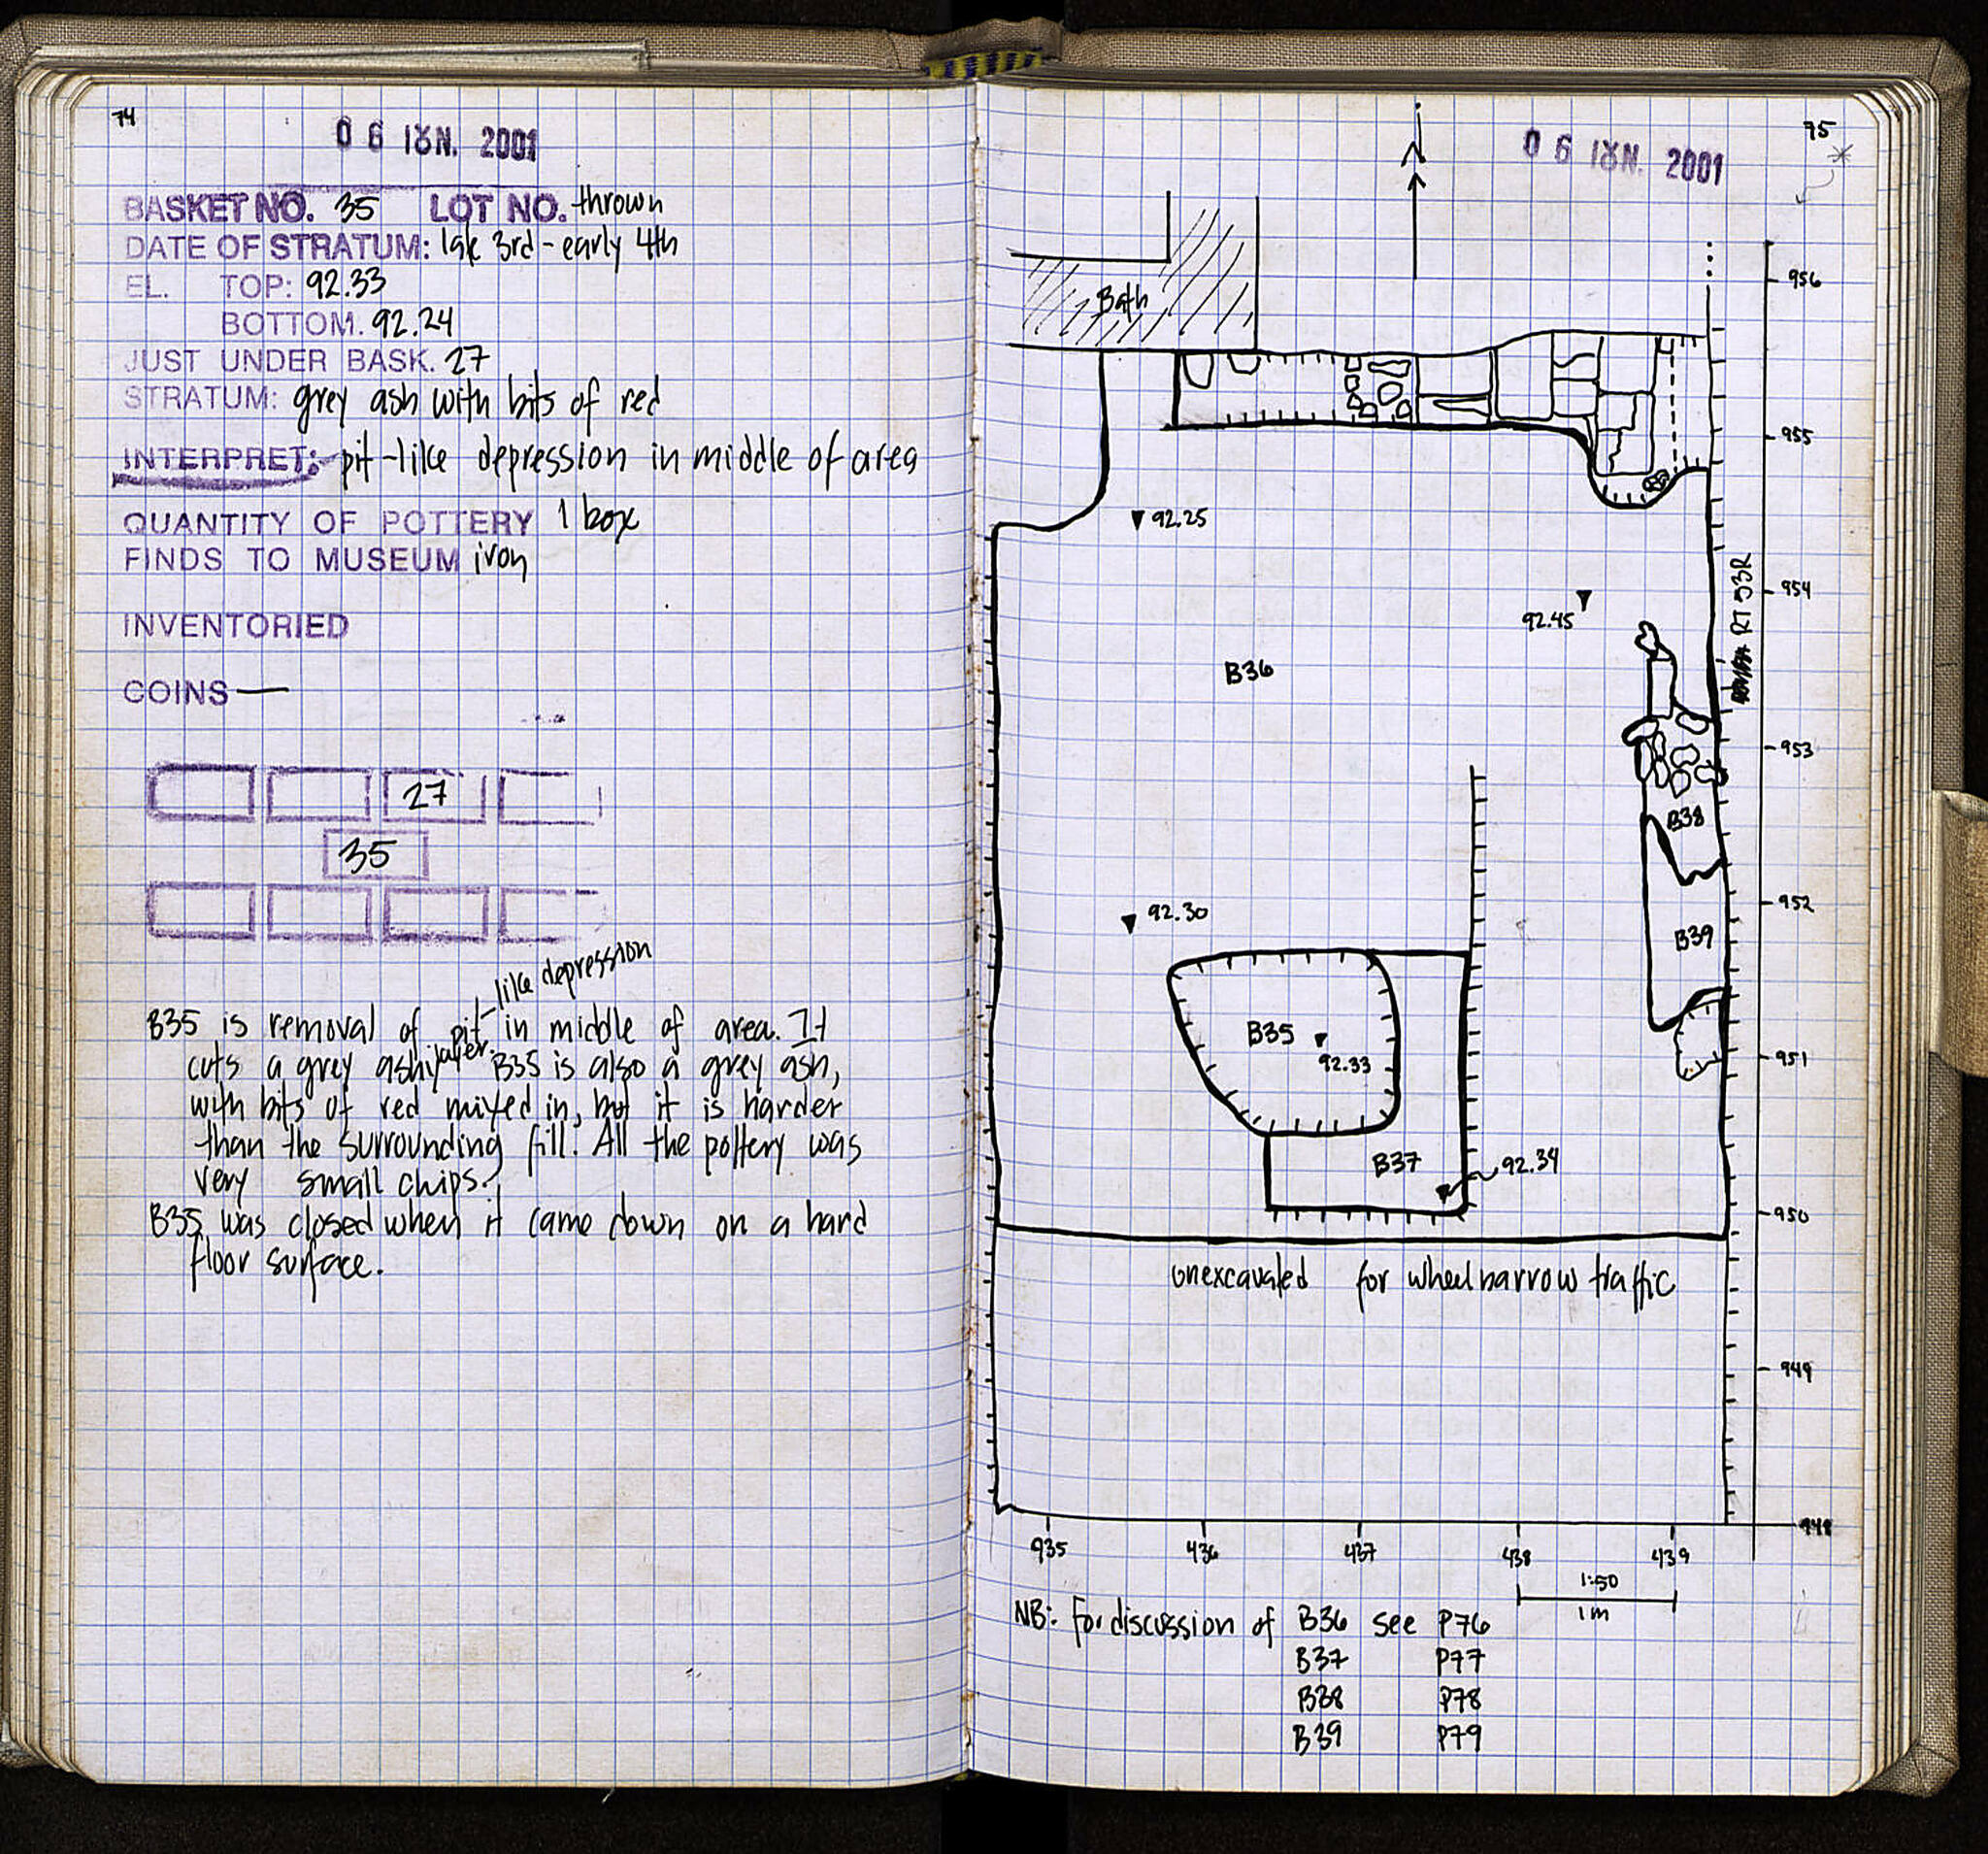 74
06 ΙȣΝ. 2001
BASKET NO. 35 LOT NO. thrown
DATE OF STRATUM: late 3rd - early 4th
EL. TOP: 92.33
BOTTOM. 92.24
JUST UNDER BASK. 27
STRATUM: grey ash with bits of red
INTERPRET: pit-like depression in middle of area
QUANTITY OF POTTERY 1 box
FINDS TO MUSEUM iron
INVENTORIED
COINS —
27
35
B35 is removal of pit-like depression in middle of area. It
cuts a grey ashy layer. B35 is also a grey ash,
with bits of red mixed in, but it is harder
than the surrounding fill. All the pottery was
very small chips.
B35 was closed when it came down on a hard
floor surface.
75
06 ΙȣΝ. 2001
Bath
956
955
92.25
954
92.45
B36
953
B38
952
92.30
B39
B35
92.33
951
B37
92.34
950
unexcavated for wheelbarrow traffic
949
948
935
436
437
438
439
1:50
1m
NB: For discussion of B36 see P76
B37 P77
B38 P78
B39 P79